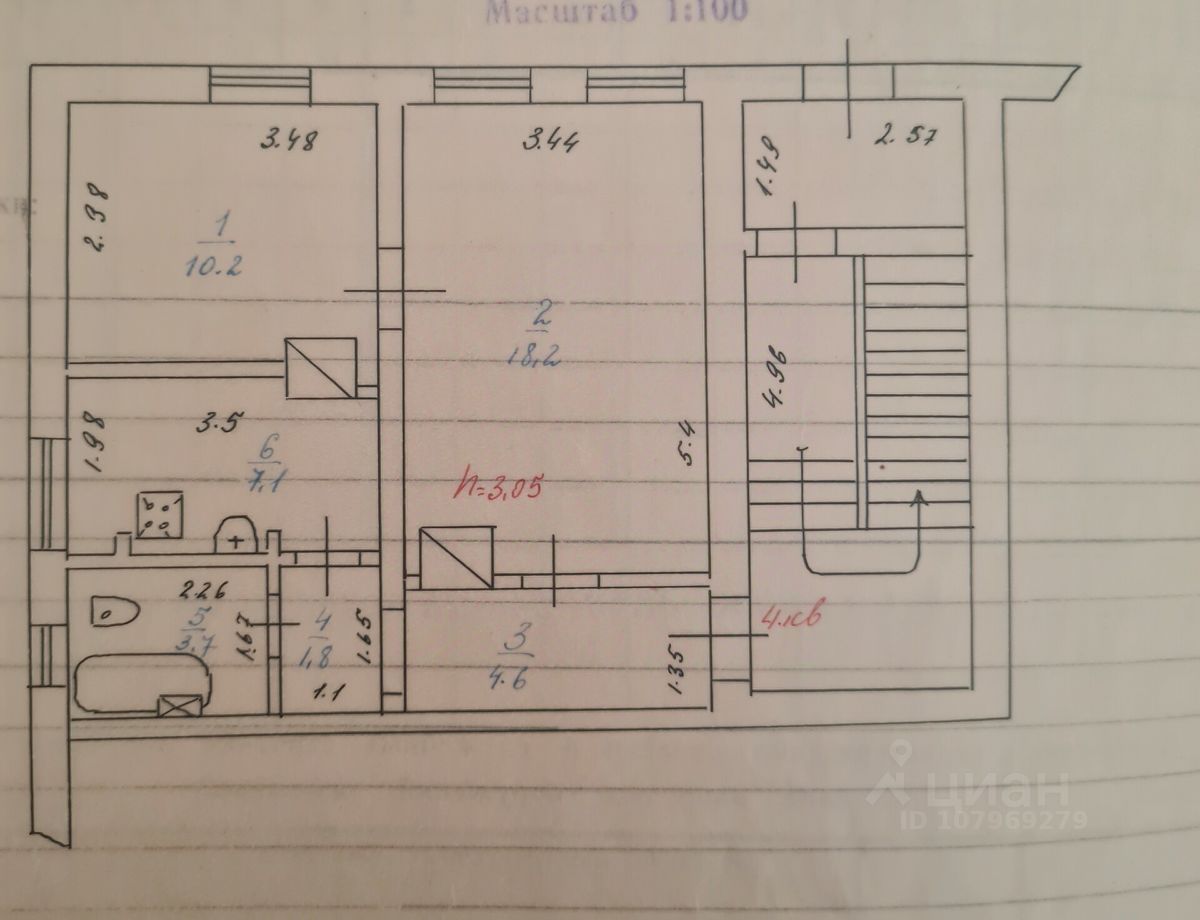 Масштаб 1:100
3.48
3.44
2.57
1.49
2.38
1
10.2
2
18,2
4.96
3.5
1.98
6
7,1
5.4
h=3,05
2.26
5
3.7
1.67
4
1,8
1.65
1.1
3
4.6
1.35
4.кв
циан
ID 107969279